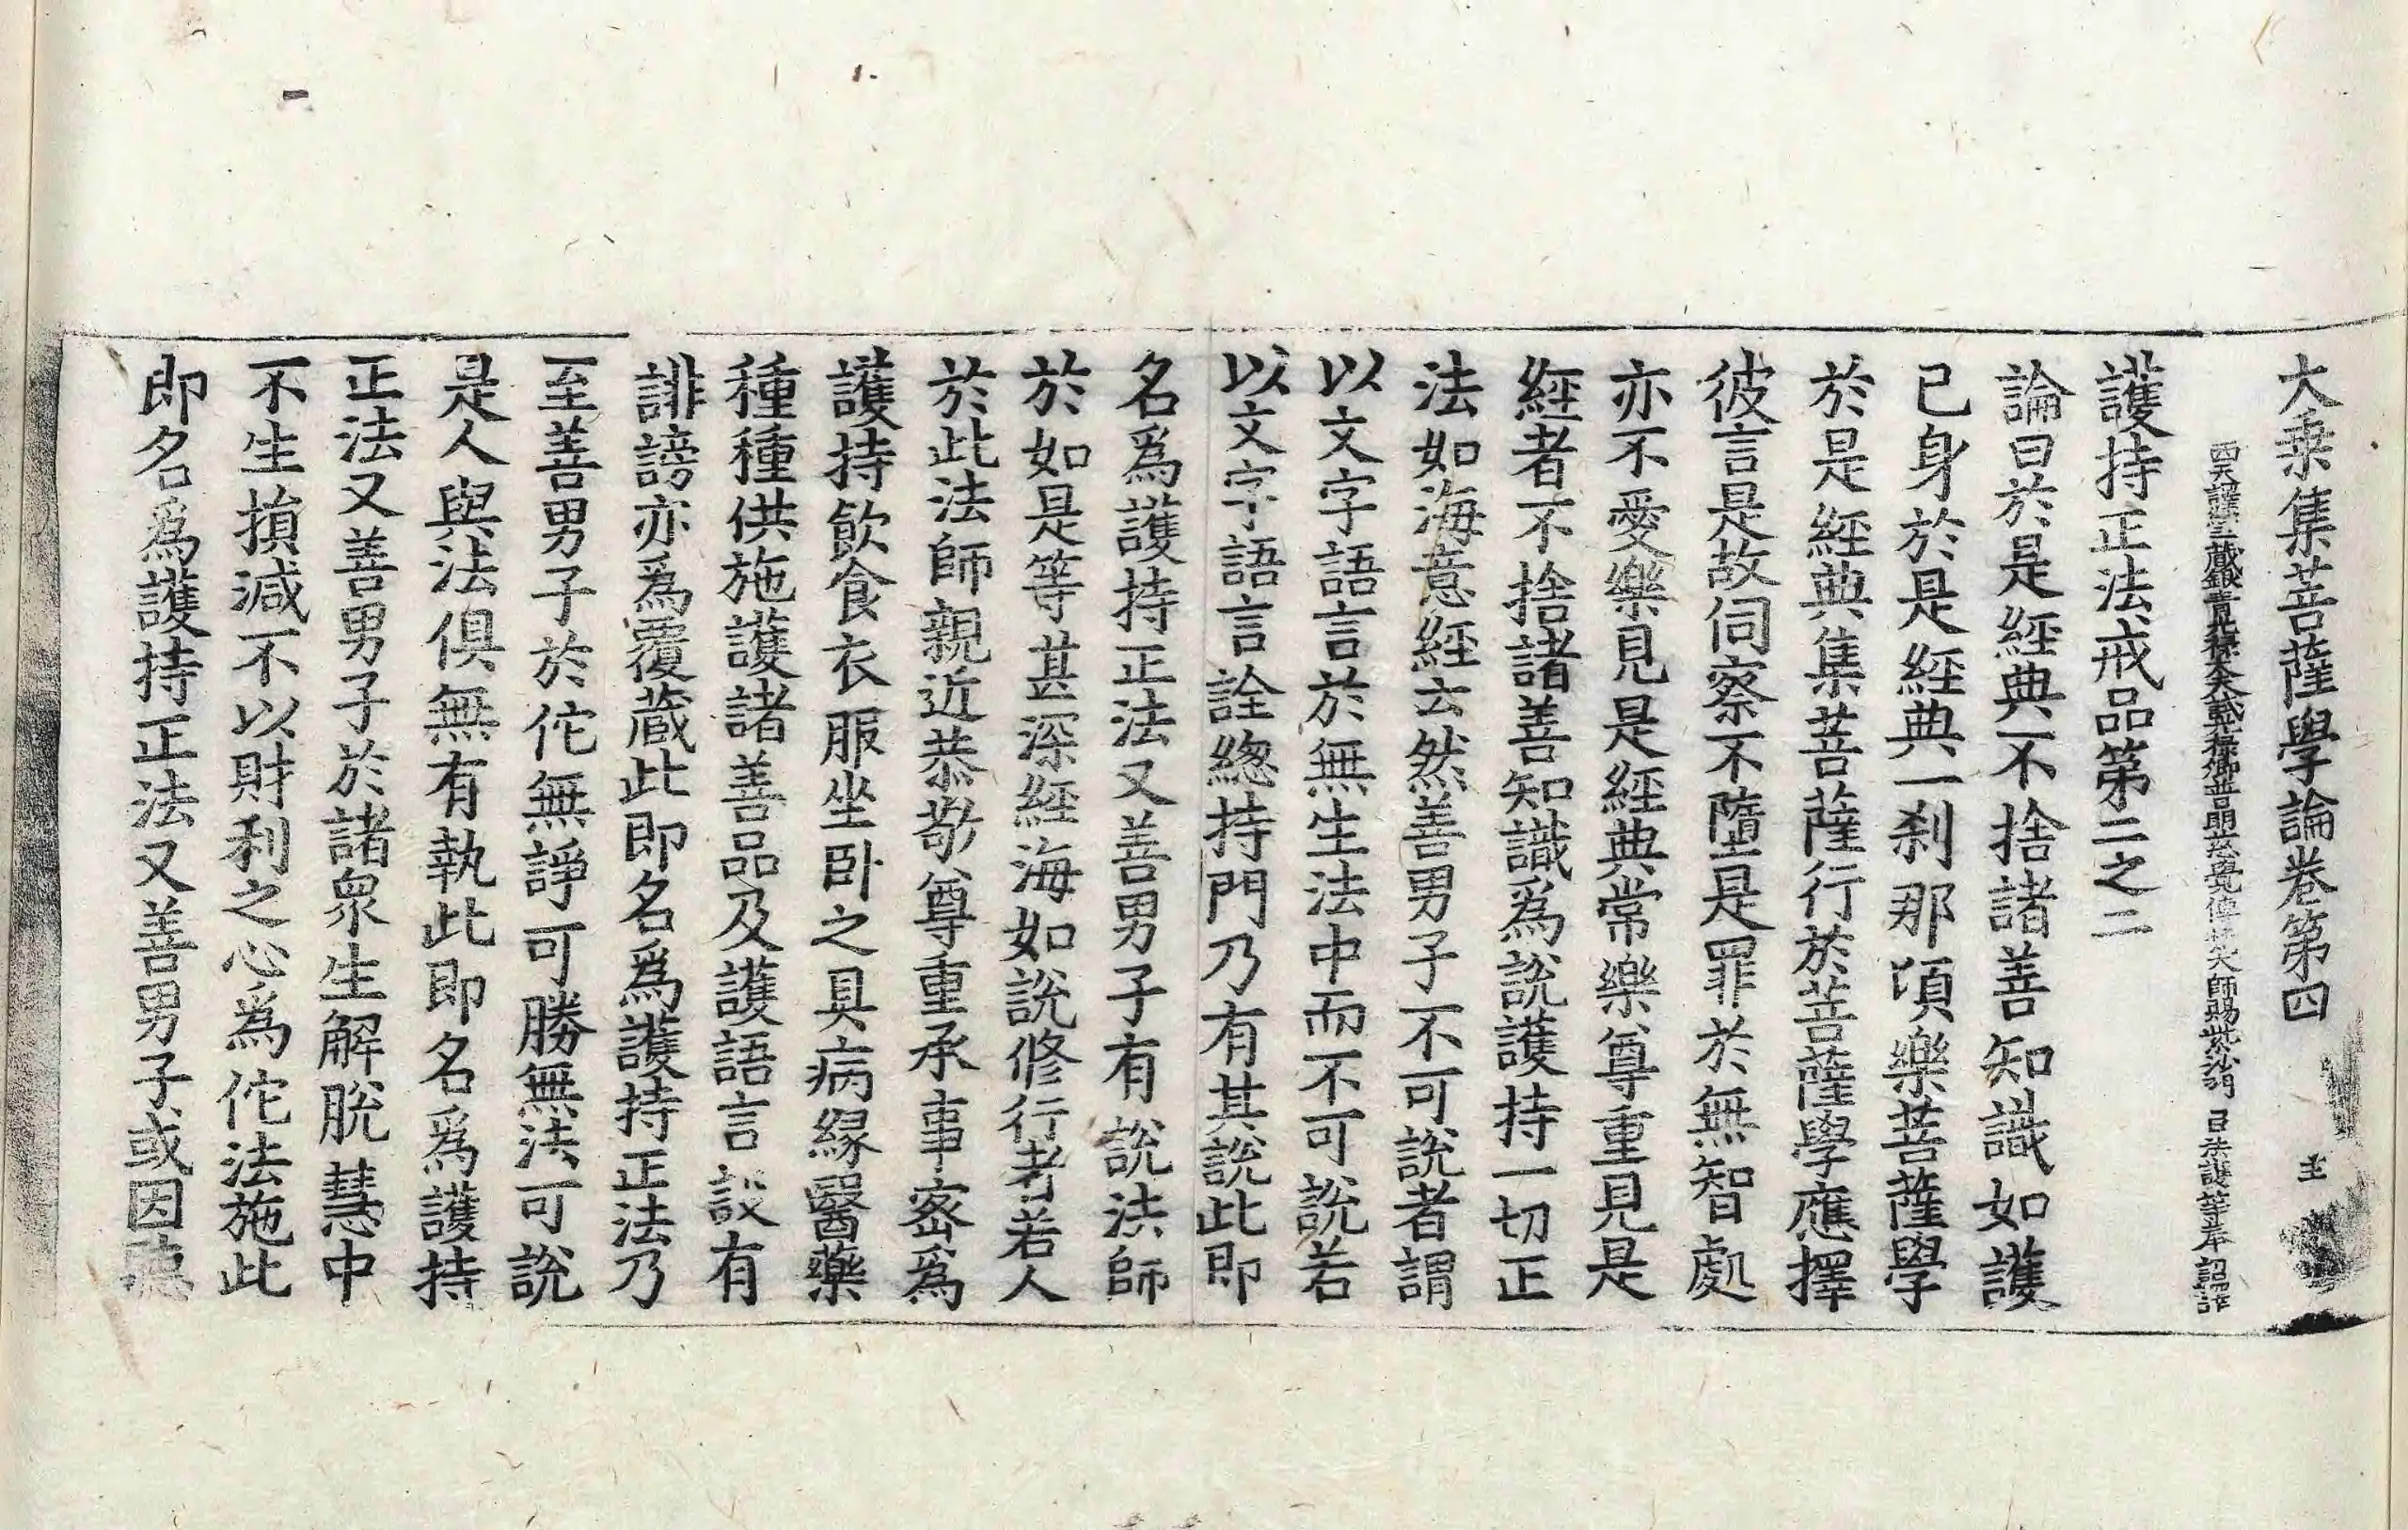 大乗集菩薩學論卷第四 圭
西天譯經三藏銀青光祿大夫試光祿卿普明慈覺傳梵大師賜紫沙門 臣法護等奉 詔譯
護持正法戒品第二之二
論曰於是經典不捨諸善知識如護
已身於是經典一刹那頃樂菩薩學
於是經典集菩薩行於菩薩學應擇
彼言是故伺察不墮是罪於無智處
亦不愛樂見是經典常樂尊重見是
經者不捨諸善知識爲說護持一切正
法如海意經云然善男子不可說者謂
以文字語言於無生法中而不可說若
以文字語言詮緫持門乃有其說此即
名爲護持正法又善男子有說法師
於如是等甚深經海如說修行者若人
於此法師親近恭敬尊重承事宻爲
護持飲食衣服坐卧之具病緣醫藥
種種供施護諸善品及護語言設有
誹謗亦爲覆藏此即名爲護持正法乃
至善男子於佗無諍可勝無法可說
是人與法俱無有執此即名爲護持
正法又善男子於諸衆生解脫慧中
不生損減不以財利之心爲佗法施此
即名爲護持正法又善男子或因聽